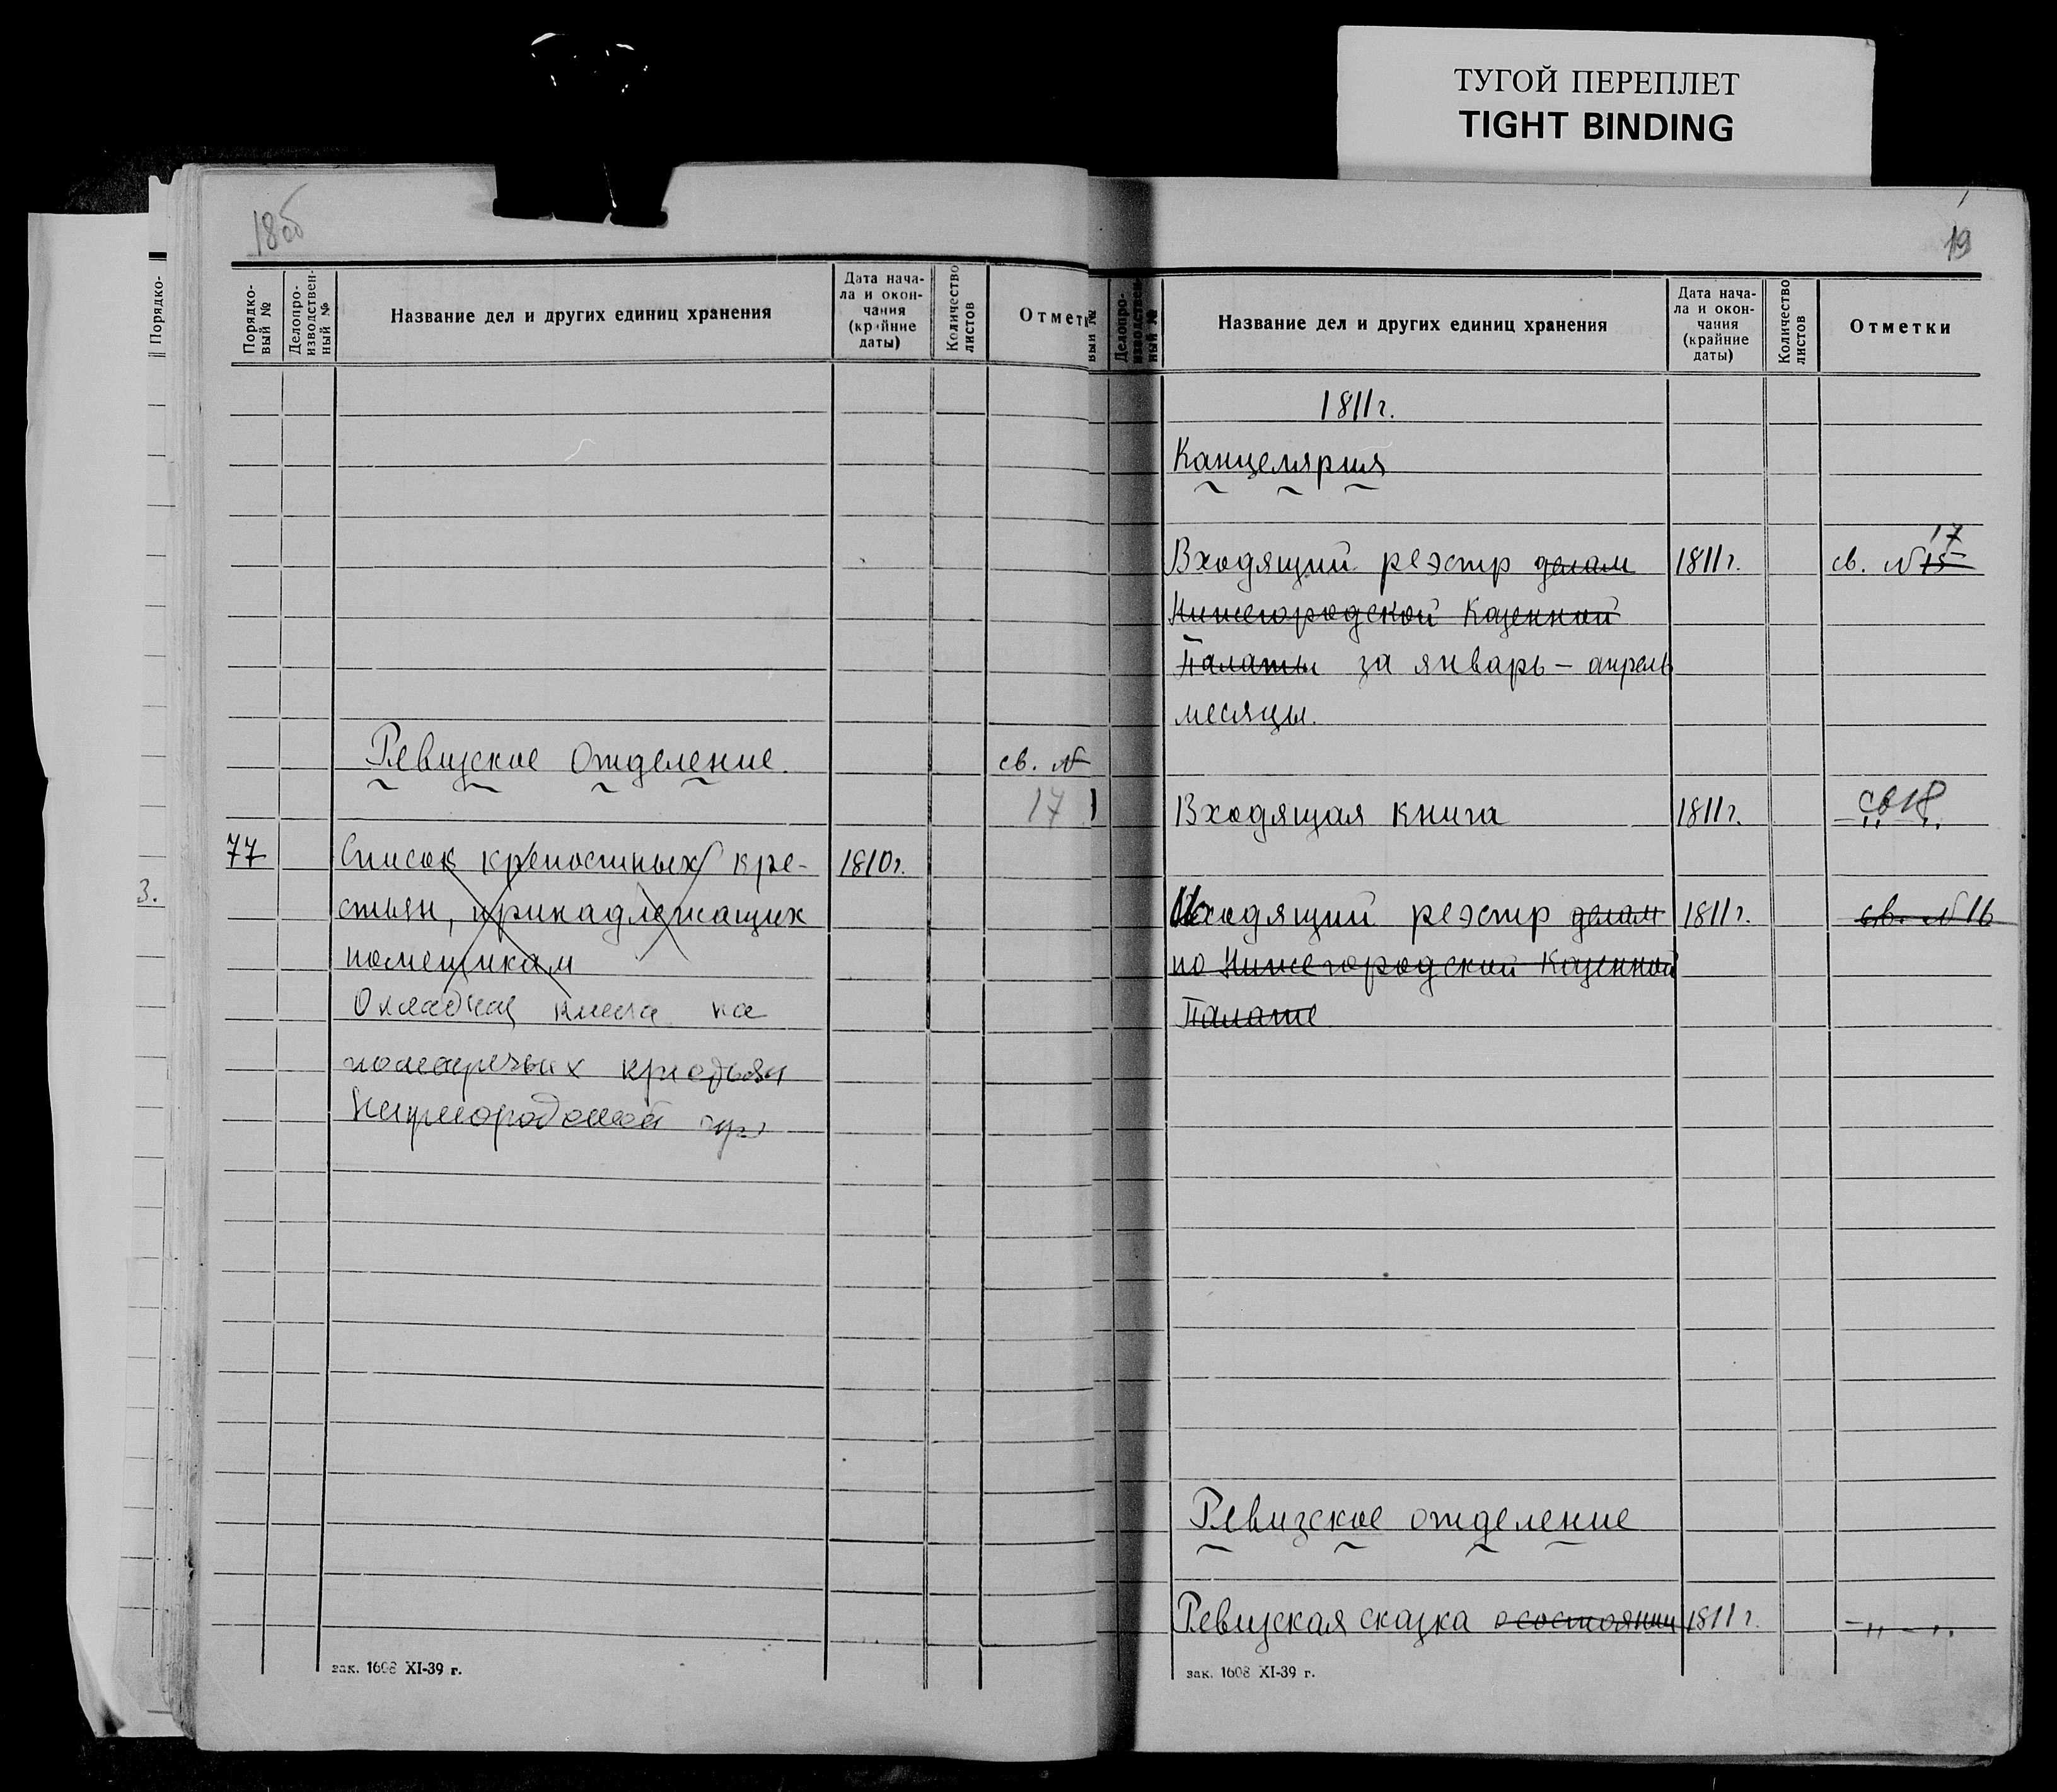 ТУГОЙ ПЕРЕПЛЕТ
TIGHT BINDING
18об
Порядко-
Порядко-
вый №
Делопро-
изводствен-
ный №
Название дел и других единиц хранения
Дата нача-
ла и окон-
чания
(крайние
даты)
Количество
листов
Отметк
Ревизское Отделение. св. №
17
77 Список крепостных кре- 1810 г.
стьян, принадлежащих
помещикам
Окладная книга на
помещичьих крестьян
Нижегородской губ
3.
зак. 1608 XI-39 г.
19
вый №
Делопро-
изводствен-
ный №
Название дел и других единиц хранения
Дата нача-
ла и окон-
чания
(крайние
даты)
Количество
листов
Отметки
1811 г.
Канцелярия
17
Входящий реэстр делам 1811 г. св. № 15
Нижегородской Казенной
Палаты за январь – апрель
месяцы.
Входящая книга 1811 г. св 18
Исходящий реэстр делам 1811 г. св. № 16
по Нижегородской Казенной
Палате
Ревизское отделение
Ревизская сказка о состоянии 1811 г. – „ – „.
зак. 1608 XI-39 г.